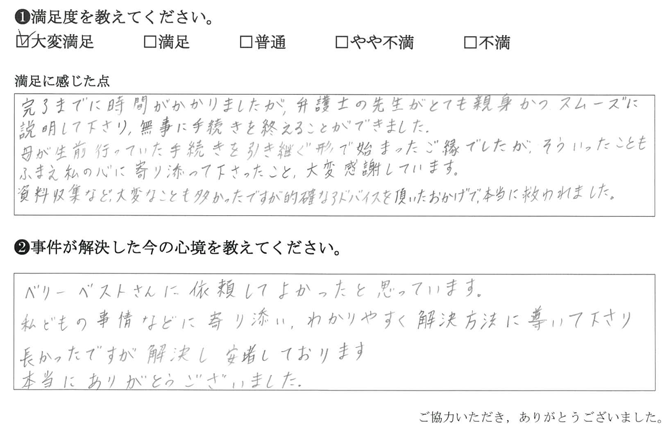 ❶満足度を教えてください。
☑大変満足 □満足 □普通 □やや不満 □不満
満足に感じた点
完了までに時間がかかりましたが、弁護士の先生がとても親身かつスムーズに
説明して下さり、無事に手続きを終えることができました。
母が生前行っていた手続きを引き継ぐ形で始まったご縁でしたが、そういったことも
ふまえ私の心に寄り添って下さったこと、大変感謝しています。
資料収集など、大変なことも多かったですが的確なアドバイスを頂いたおかげで、本当に救われました。
❷事件が解決した今の心境を教えてください。
ベリーベストさんに依頼してよかったと思っています。
私どもの事情などに寄り添い、わかりやすく解決方法に導いて下さり
長かったですが解決し安堵しております
本当にありがとうございました。
ご協力いただき，ありがとうございました。